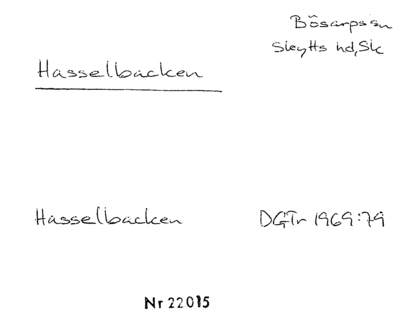 Bösarps sn
Skytts hd, Sk
Hasselbacken
Hasselbacken DGTr 1969:79
Nr 22015